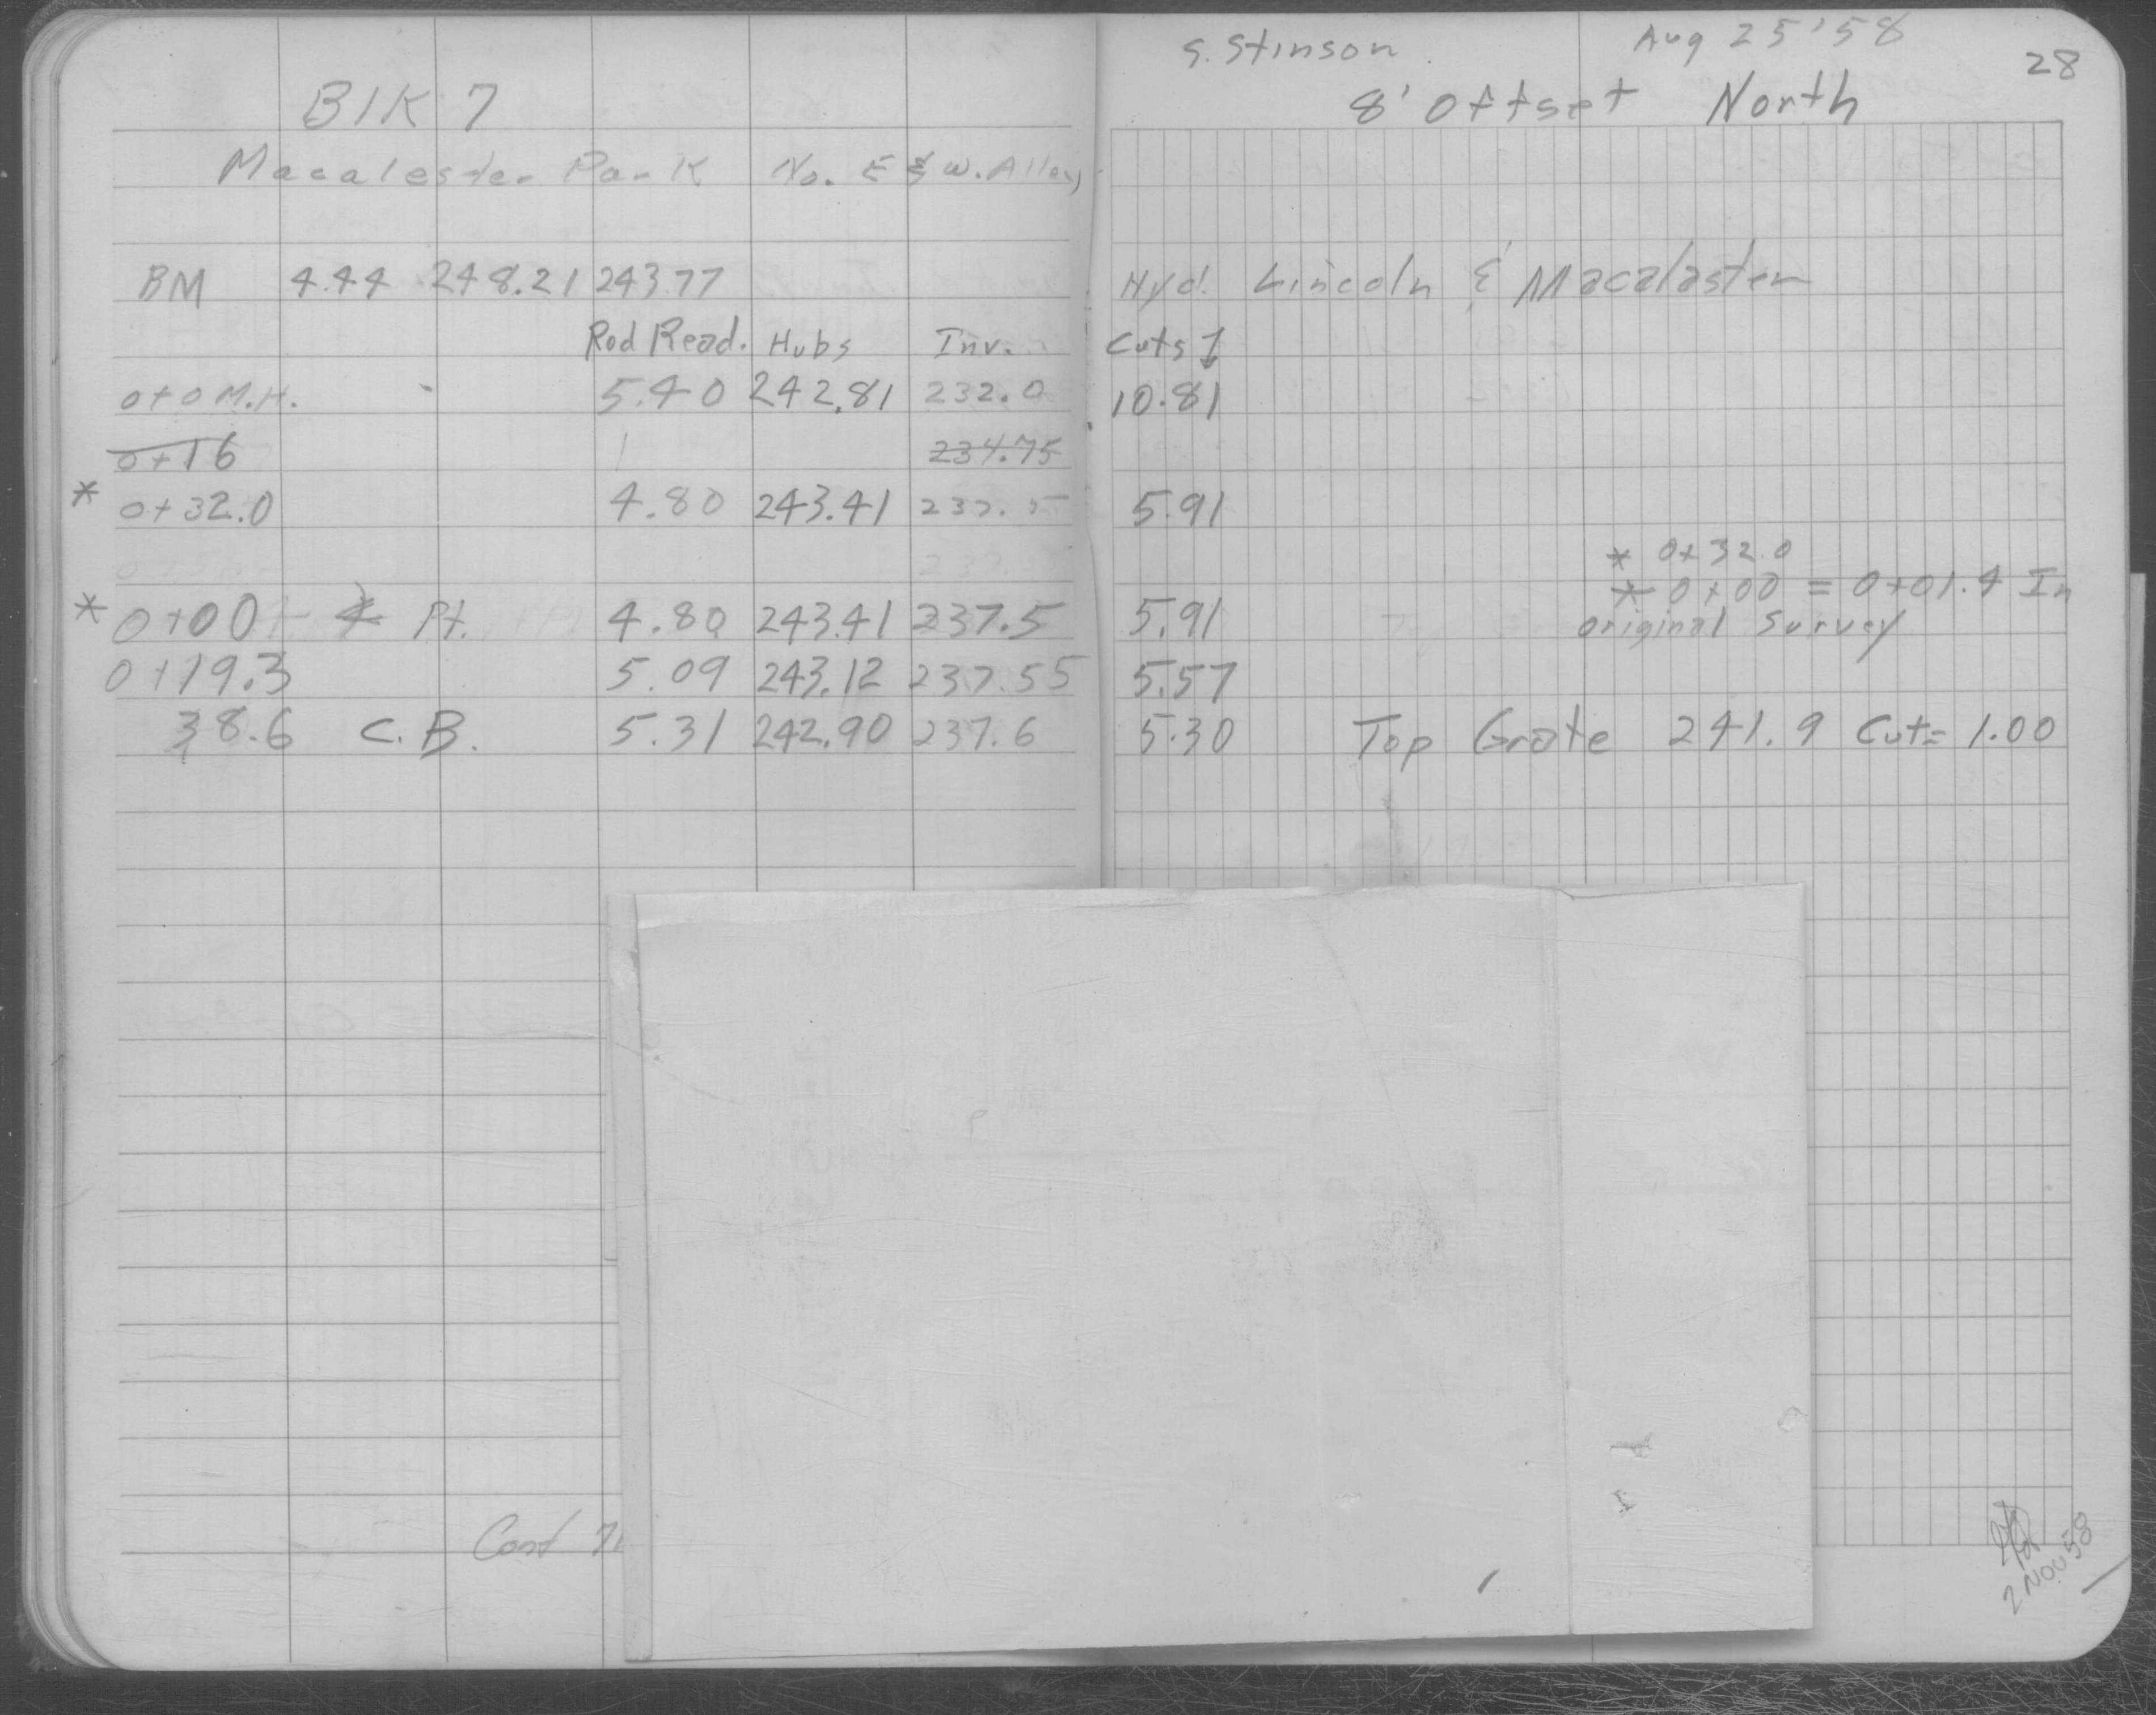 S. Stinson Aug 25 '58
28
Blk 7 8' Offset North
Macalester Park No. E & W. Alley
BM 4.44 248.21 243.77 Hyd. Lincoln & Macalaster
Rod Read. Hubs Inv. Cuts ↓
0+0 M.H. 5.40 242.81 232.0 10.81
0+16 234.75
* 0+32.0 4.80 243.41 5.91
* 0+32.0
* 0+00 = 0+01.4 In
* 0+00 Pt. 4.80 243.41 237.5 5.91
original Survey
0+19.3 5.09 243.12 237.55 5.57
38.6 C.B. 5.31 242.90 237.6 5.30 Top Grate 241.9 Cut= 1.00
Cont
2 Nov 58